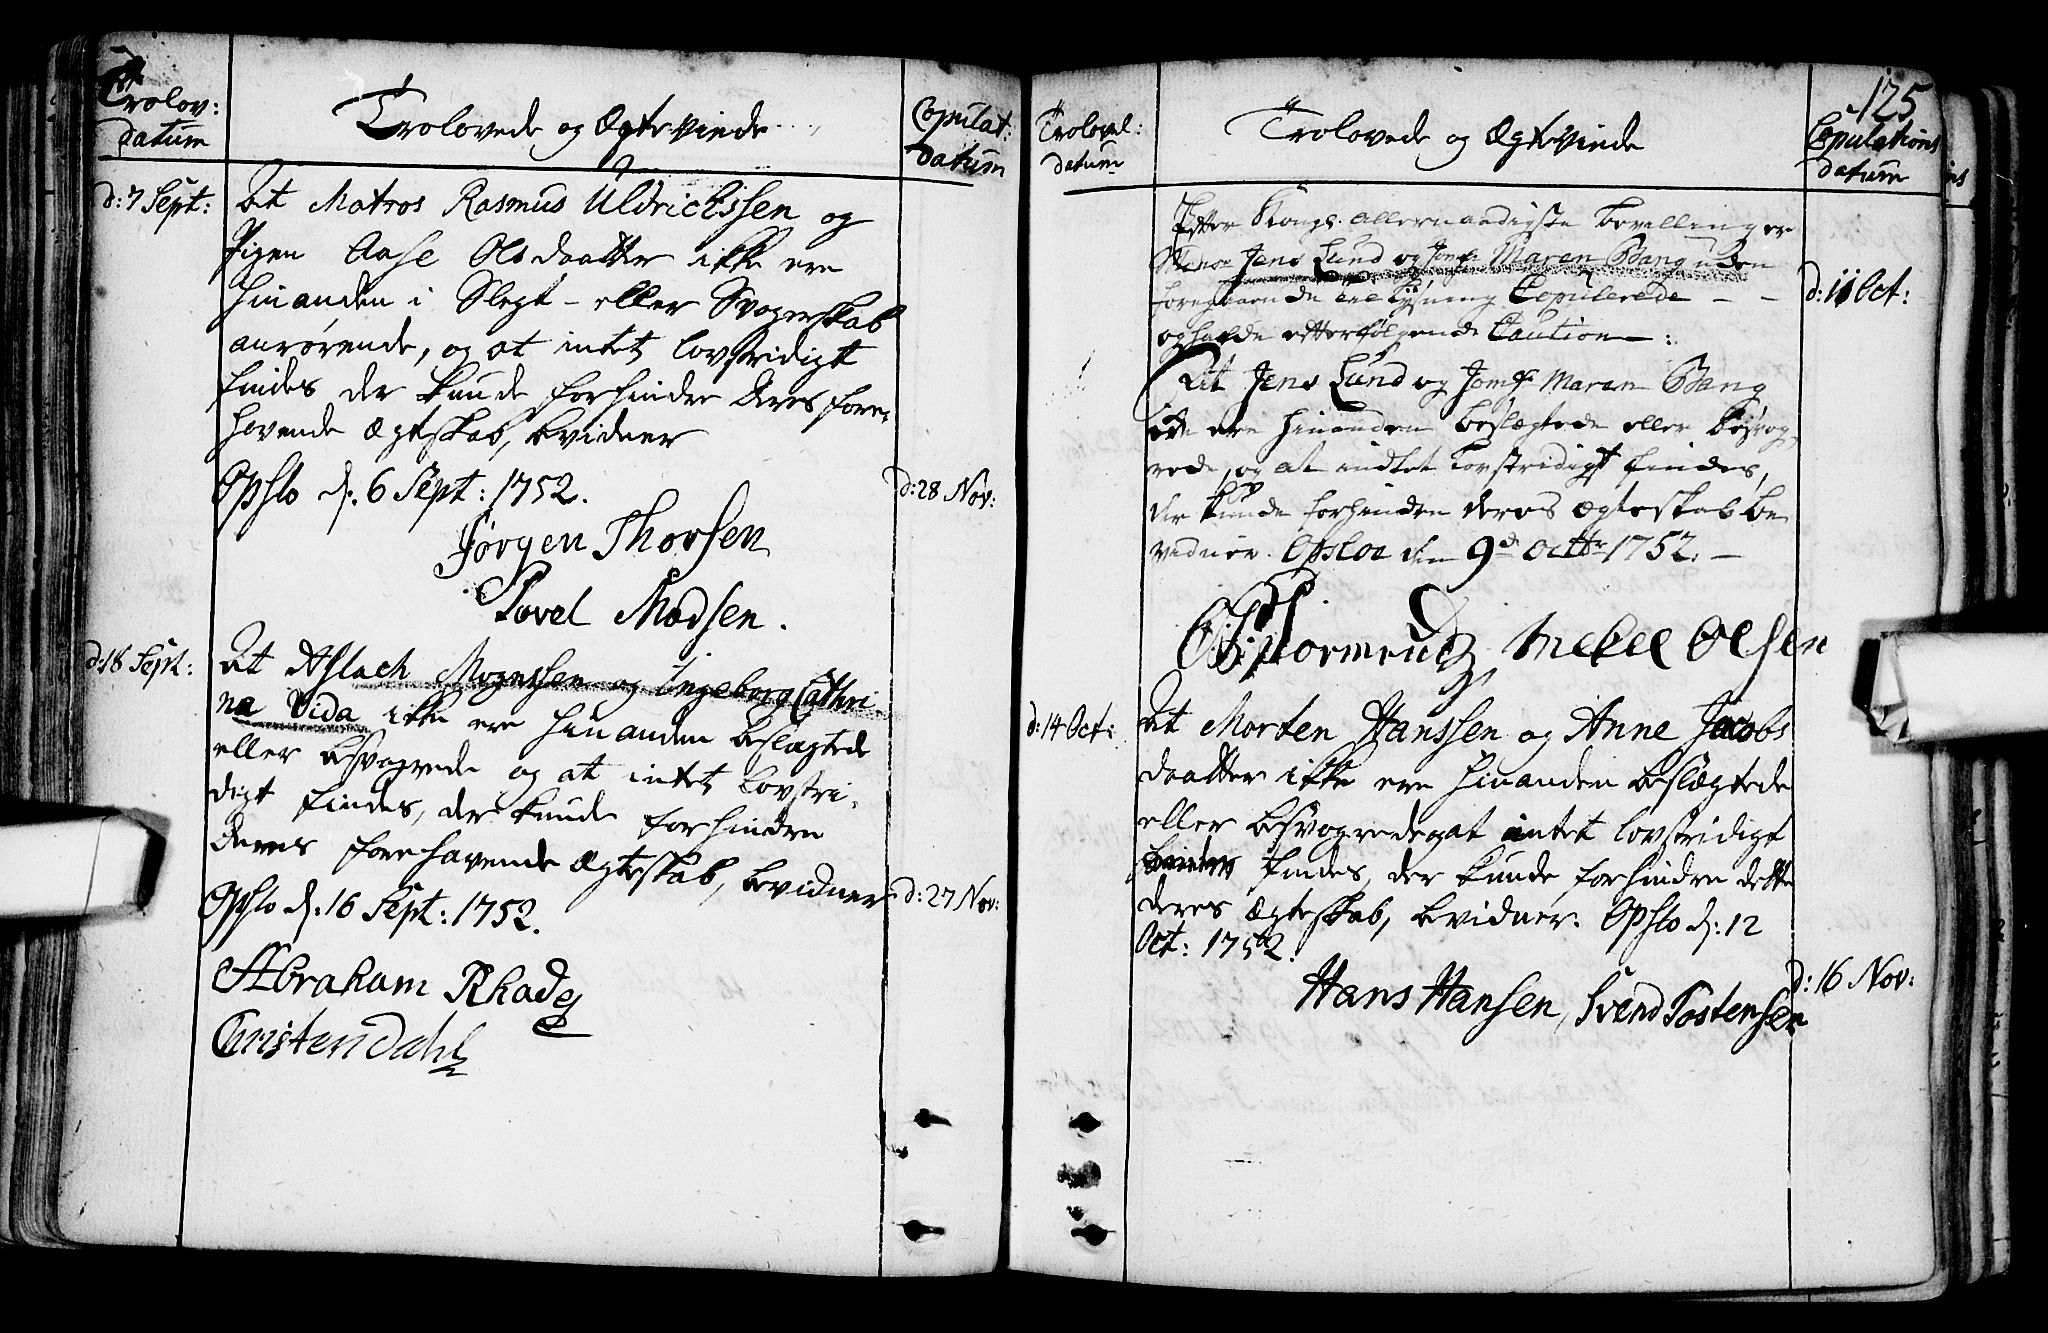 Trolov:
datum
Trolovede og Ægtevinde
Copulat:
datum
d: 7 Sept:
At Matros Rasmus Uldrichssen og
Pigen Aase Olsdaatter ikke ere
hinanden i Slegt- eller Svogerskab
anrørende, og at intet lovstridigt
findes der kunde forhindre deres fore-
havende Ægteskab, bevidner
Opslo d: 6 Sept: 1752.
d: 28 Nov:
Jørgen Thorsen
Povel Madsen.
d: 18 Sept:
At Aslach Mogenssen og Ingeborg Cathri-
na Vida ikke ere hinanden beslægtede
eller besvogrede og at intet lovstri-
digt findes, der kunde forhindre
deres forehavende Ægteskab, bevidner
Opslo d: 16 Sept: 1752.
d: 27 Nov:
Abraham Rhade
Christen Dahl
125
Trolovel:
datum
Trolovede og Ægtevinde
Copulations
datum
Efter Kongl. allernaadigste bevilling er
Jens Lund og Jomf: Maren Bang uden
foregaaende Tillysning Copulerede - -
d: 11 Oct:
og havde efterfølgende Caution:
At Jens Lund og Jomf: Maren Bang
ikke ere hinanden beslægtede eller besvog-
rede, og at indtet Lovstridigt findes,
der kunde forhindre deres Ægteskab be-
vidner. Opsloe den 9d Octbr 1752. -
Mekel Olsen
d: 14 Oct:
At Morten Hanssen og Anne Jacobs
daatter ikke ere hinanden beslægtede
eller besvogrede, og at intet lovstridigt
findes, der kunde forhindre dette
deres Ægteskab, bevidner. Opslo d: 12
Oct: 1752.
d: 16 Nov:
Hans Hansen, Svend Tostensen